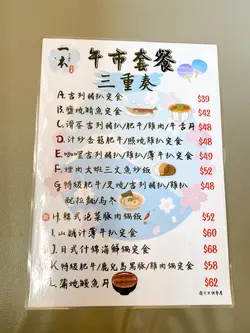 一本
午市套餐
三重奏
A. 吉列豬扒定食 $39
B. 鹽燒鯖魚定食 $42
C. 滑蛋吉列豬扒/肥牛/雞肉/牛舌丼 $48
D. 汁炒杏菇肥牛/照燒雞扒定食 $48
E. 咖哩吉列豬扒/雞扒/薄牛扒定食 $49
F. 燒肉大蝦三文魚炒飯 $52
G. 特級肥牛/叉燒/吉列雞扒
肥拉麵/烏冬 $48
H. 韓式泡菜豚肉鍋飯 $52
I. 山葵汁薄牛扒定食 $60
J. 日式什錦海鮮鍋定食 $68
K. 特級肥牛/鹿兒島黑豚/雞肉鍋定食 $58
L. 蒲燒鰻魚丼 $62